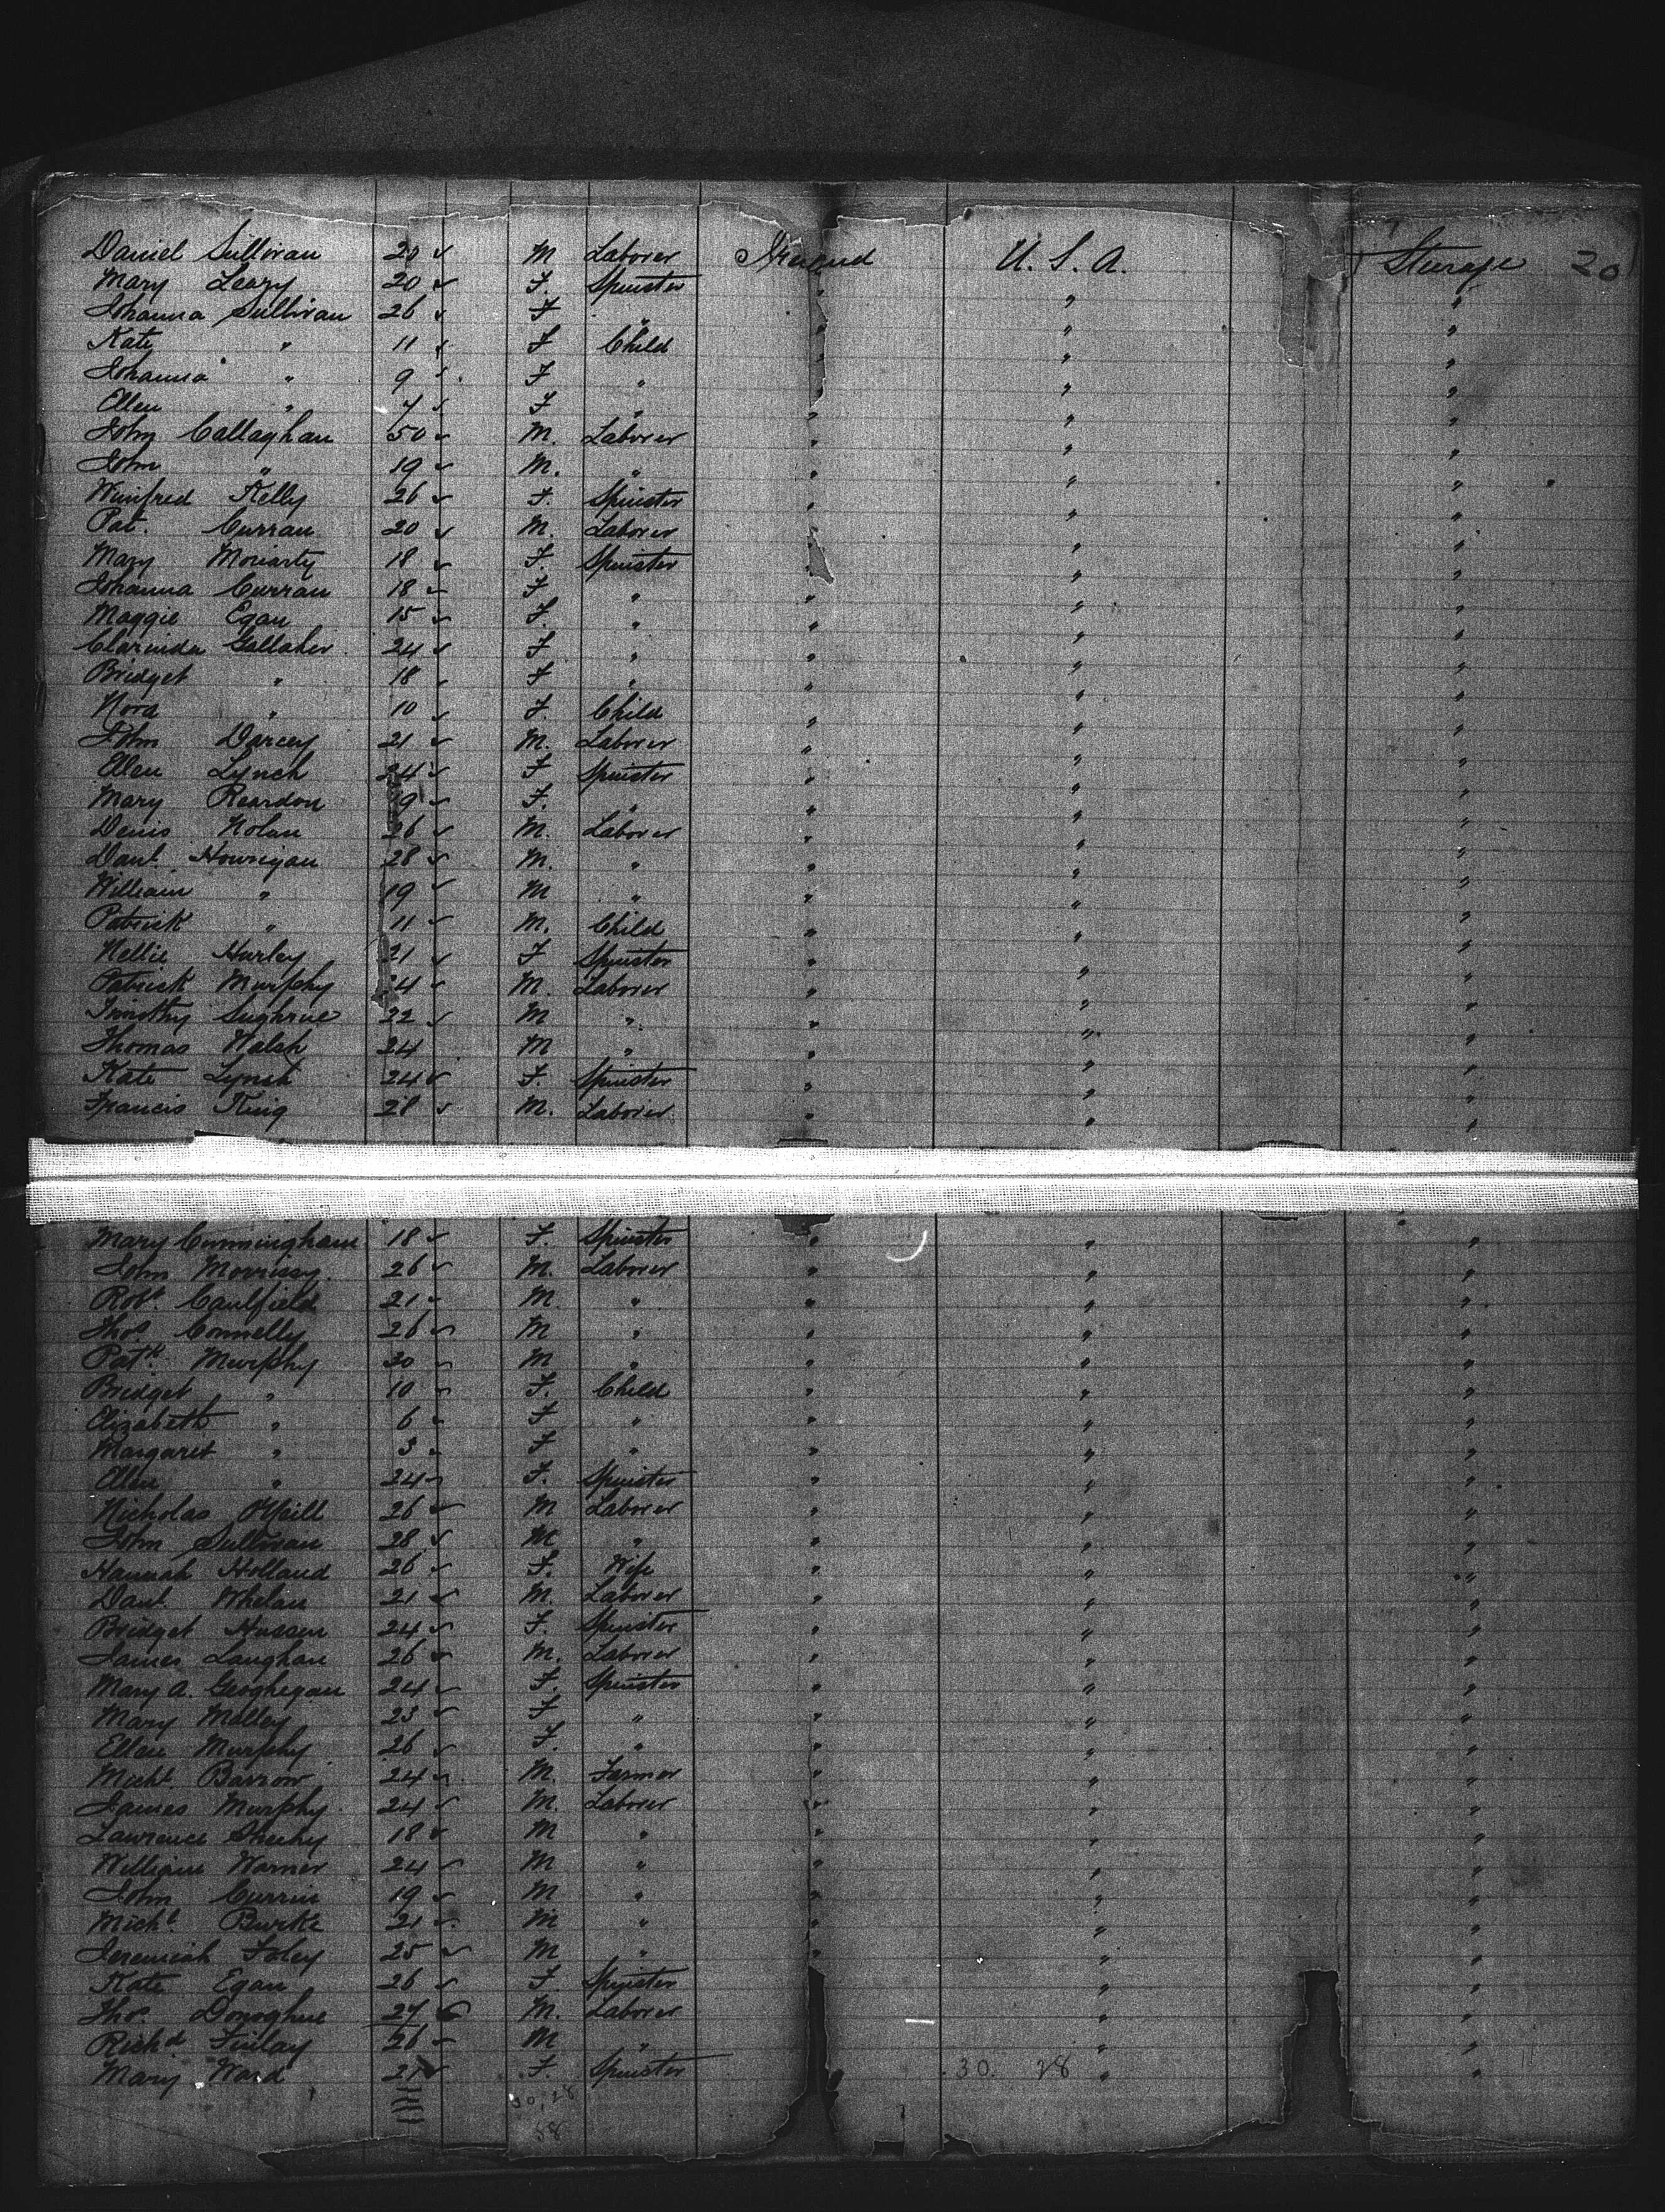 Daniel Sullivan 20 M Laborer Ireland U.S.A. Steerage 20
Mary Leary 20 F. Spinster " " "
Johanna Sullivan 26 F " " " "
Kate " 11 F Child " " "
Johanna " 9 F " " " "
Ellen " 4 F " " " "
John Callaghan 50 M. Laborer " " "
John " 19 M. " " " "
Winifred Kelly 26 F. Spinster " " "
Pat. Curran 20 M. Laborer " " "
Mary Moriarty 18 F. Spinster " " "
Johanna Curran 18 F " " " "
Maggie Egan 15 F. " " " "
Clarinda Gallaher 24 F " " " "
Bridget " 18 F " " " "
Nora " 10 F. Child " " "
John Darcey 21 M. Laborer " " "
Ellen Lynch 24 F Spinster " " "
Mary Reardon 19 F. " " " "
Denis Nolan 26 M. Laborer " " "
Danl. Hourigan 28 M. " " " "
William " 19 M " " " "
Patrick " 11 M. Child " " "
Nellie Hurley 21 F Spinster " " "
Patrick Murphy 24 M. Laborer " " "
Timothy Sughrue 22 M " " " "
Thomas Walsh 24 M " " " "
Kate Lynch 24 F. Spinster " " "
Francis King 28 M. Laborer " " "
Mary Cunningham 18 F. Spinster " " "
John Morrissy. 26 M. Laborer " " "
Robt. Caulfield 21 M. " " " "
Thos Connelly 26 M " " " "
Patk. Murphy 30 M " " " "
Bridget " 10 F. Child " " "
Elizabeth " 6 F " " " "
Margaret " 3 F " " " "
Ellen " 24 F. Spinster " " "
Nicholas O'Neill 26 M Laborer " " "
John Sullivan 28 M " " " "
Hannah Holland 26 F. Wife " " "
Danl. Whelan 21 M. Laborer " " "
Bridget Hussen 24 F. Spinster " " "
James Langhan 26 M. Laborer " " "
Mary A. Geoghegan 24 F. Spinster " " "
Mary Malley 23 F " " " "
Ellen Murphy 26 F. " " " "
Michl. Barrow 24 M. Farmer " " "
James Murphy. 24 M. Laborer " " "
Lawrence Sheehy 18 M " " " "
William Warner 24 M " " " "
John Currin 19 M " " " "
Michl. Burke 21 M " " " "
Jeremiah Foley 25 M " " " "
Kate Egan 26 F Spinster " " "
Thos. Donoghue 27 M. Laborer " "
Richd. Finlay 26 M " " "
Mary Ward 21 F. Spinster 30. 28 " "
30,28
58